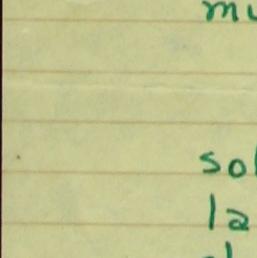 mu
sol
la